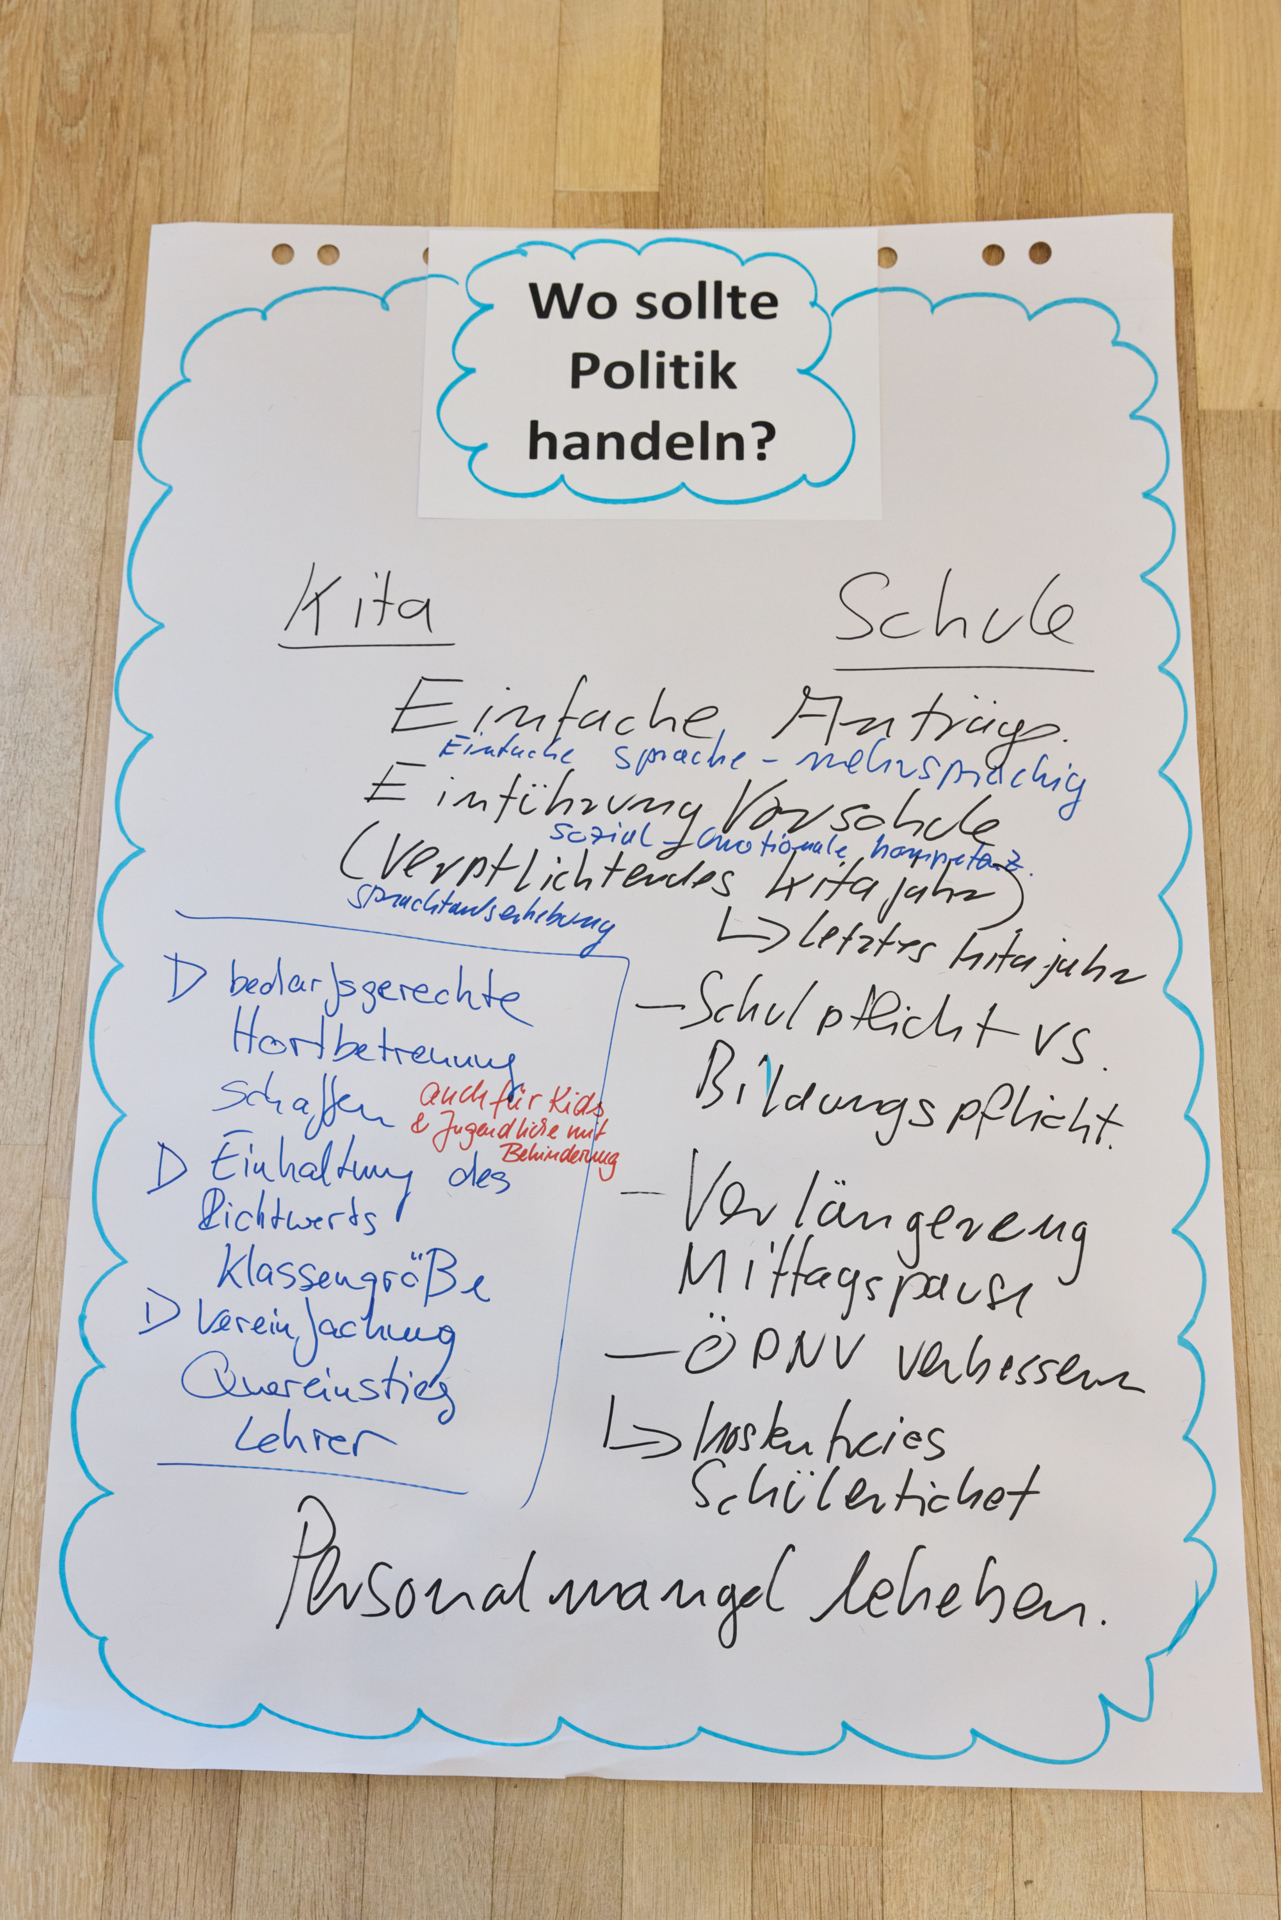 Wo sollte
Politik
handeln?
Kita
Schule
Einfache Anträge.
Einfache Sprache - mehrsprachig
Einführung Vorschule
sozial-emotionale Kompetenz.
(verpflichtendes Kitajahr)
Sprachstandserhebung
↳ letztes Kitajahr
▷ bedarfsgerechte
Hortbetreuung
schaffen
auch für Kids
& Jugendliche mit
Behinderung
▷ Einhaltung des
Richtwerts
Klassengröße
▷ Vereinfachung
Quereinstieg
Lehrer
- Schulpflicht vs.
Bildungspflicht.
- Verlängerung
Mittagspause
- ÖPNV verbessern
↳ kostenfreies
Schülerticket
Personalmangel beheben.